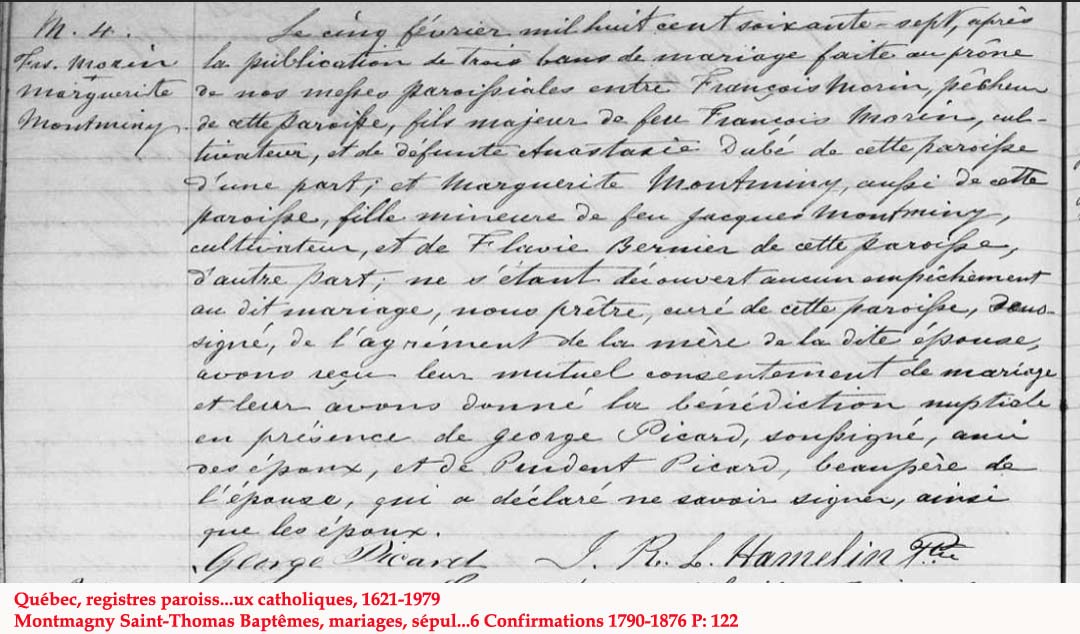 M. 4.
Frs. Morin
+
Marguerite
Montminy.
Le cinq février mil huit cent soixante-sept, après
la publication de trois bans de mariage faite au prône
de nos messes paroissiales entre François Morin, pêcheur
de cette paroisse, fils majeur de feu François Morin, cul-
tivateur, et de défunte Anastasie Dubé de cette paroisse
d'une part; et Marguerite Montminy, aussi de cette
paroisse, fille mineure de feu Jacques Montminy,
cultivateur, et de Flavie Bernier de cette paroisse,
d'autre part; ne s'étant découvert aucun empêchement
au dit mariage, nous prêtre, curé de cette paroisse, sous-
signé, de l'agrément de la mère de la dite épouse,
avons reçu leur mutuel consentement de mariage
et leur avons donné la bénédiction nuptiale
en présence de George Picard, soussigné, ami
des époux, et de Prudent Picard, beaupère de
l'épouse, qui a déclaré ne savoir signer, ainsi
que les époux.
George Picard J. R. L. Hamelin Ptre
Québec, registres paroiss...ux catholiques, 1621-1979
Montmagny Saint-Thomas Baptêmes, mariages, sépul...6 Confirmations 1790-1876 P: 122